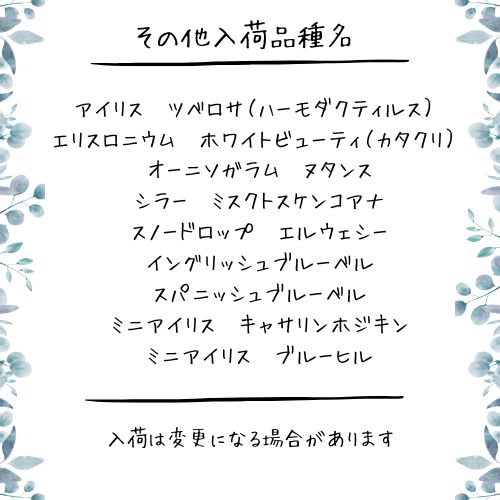 その他入荷品種名
アイリス　ツベロサ(ハーモダクティルス)
エリスロニウム　ホワイトビューティ(カタクリ)
オーニソガラム　ヌタンス
シラー　ミスクトスケンコアナ
スノードロップ　エルウェシー
イングリッシュブルーベル
スパニッシュブルーベル
ミニアイリス　キャサリンホジキン
ミニアイリス　ブルーヒル
入荷は変更になる場合があります